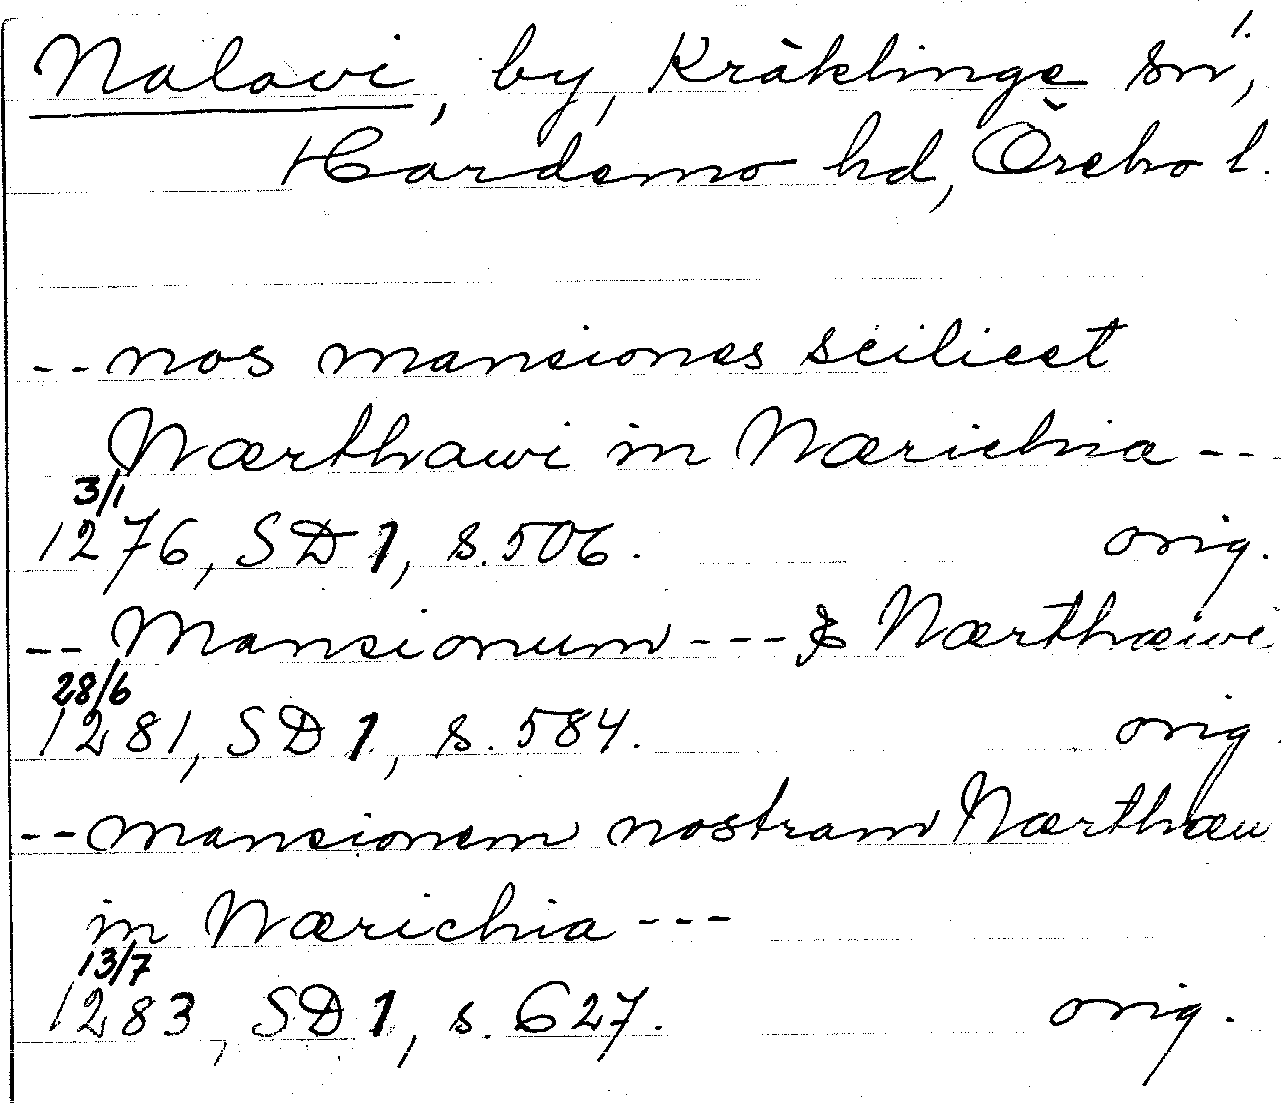 Nalavi, by, Kräklinge sn 1.,
Hardemo hd, Örebro l.
-- nos mansiones scilicet
Nærthawi in Nærichia ---
3/1
1276, SD 1, s. 506. orig.
-- Mansionum --- & Nærthæwi
28/6
1281, SD 1, s. 584. orig.
-- mansionem nostram Nærthæu
in Nærichia ---
13/7
1283, SD 1, s. 627. orig.